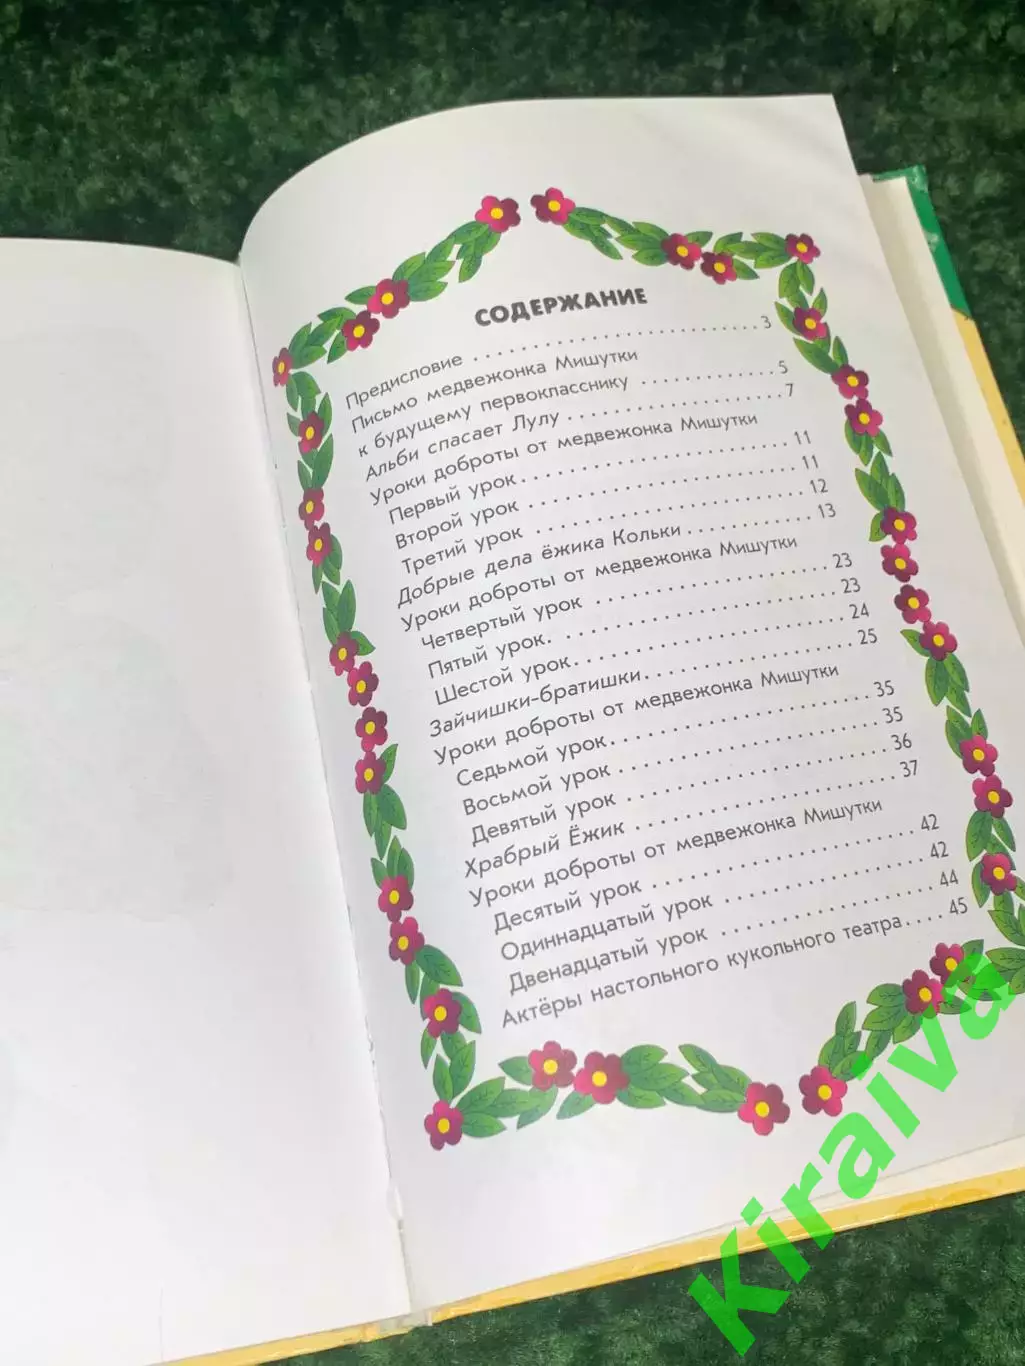 СОДЕРЖАНИЕ
Предисловие . . . . . . . . . . . . . . . . . . . . . . . . 3
Письмо медвежонка Мишутки
к будущему первокласснику . . . . . . . . . . . . 5
Альби спасает Лулу . . . . . . . . . . . . . . . . . . 7
Уроки доброты от медвежонка Мишутки
Первый урок . . . . . . . . . . . . . . . . . . . . . . 11
Второй урок . . . . . . . . . . . . . . . . . . . . . . 11
Третий урок . . . . . . . . . . . . . . . . . . . . . . 12
Добрые дела ёжика Кольки . . . . . . . . . . . 13
Уроки доброты от медвежонка Мишутки
Четвертый урок . . . . . . . . . . . . . . . . . . . 23
Пятый урок. . . . . . . . . . . . . . . . . . . . . . . 23
Шестой урок. . . . . . . . . . . . . . . . . . . . . . 24
Зайчишки-братишки. . . . . . . . . . . . . . . . 25
Уроки доброты от медвежонка Мишутки
Седьмой урок. . . . . . . . . . . . . . . . . . . . . 35
Восьмой урок . . . . . . . . . . . . . . . . . . . . . 35
Девятый урок . . . . . . . . . . . . . . . . . . . . . 36
Храбрый Ёжик . . . . . . . . . . . . . . . . . . . . 37
Уроки доброты от медвежонка Мишутки
Десятый урок . . . . . . . . . . . . . . . . . . . . . 42
Одиннадцатый урок . . . . . . . . . . . . . . . . 42
Двенадцатый урок . . . . . . . . . . . . . . . . . 44
Актёры настольного кукольного театра. . . . 45
Kiraiva